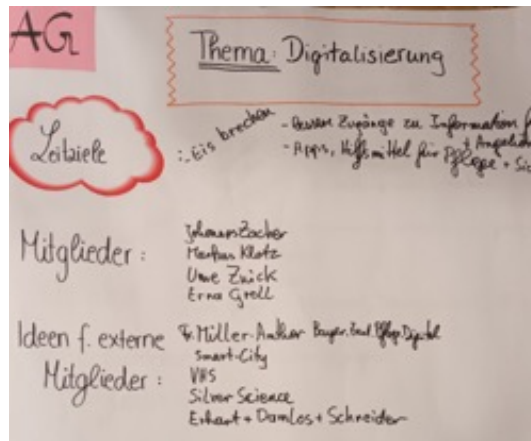 AG
Thema: Digitalisierung
Leitziele
: Eis brechen
- Bessere Zugänge zu Information
+ Angehörige
- Apps, Hilfsmittel für Pflege +
Mitglieder:
Johannes Zacher
Markus Klotz
Uwe Zwick
Erna Grell
Ideen f. externe
Mitglieder:
Fr. Miller-Anker Bayer. Digital
Smart-City
VHS
Silver Science
Erhart + Damlos + Schneider